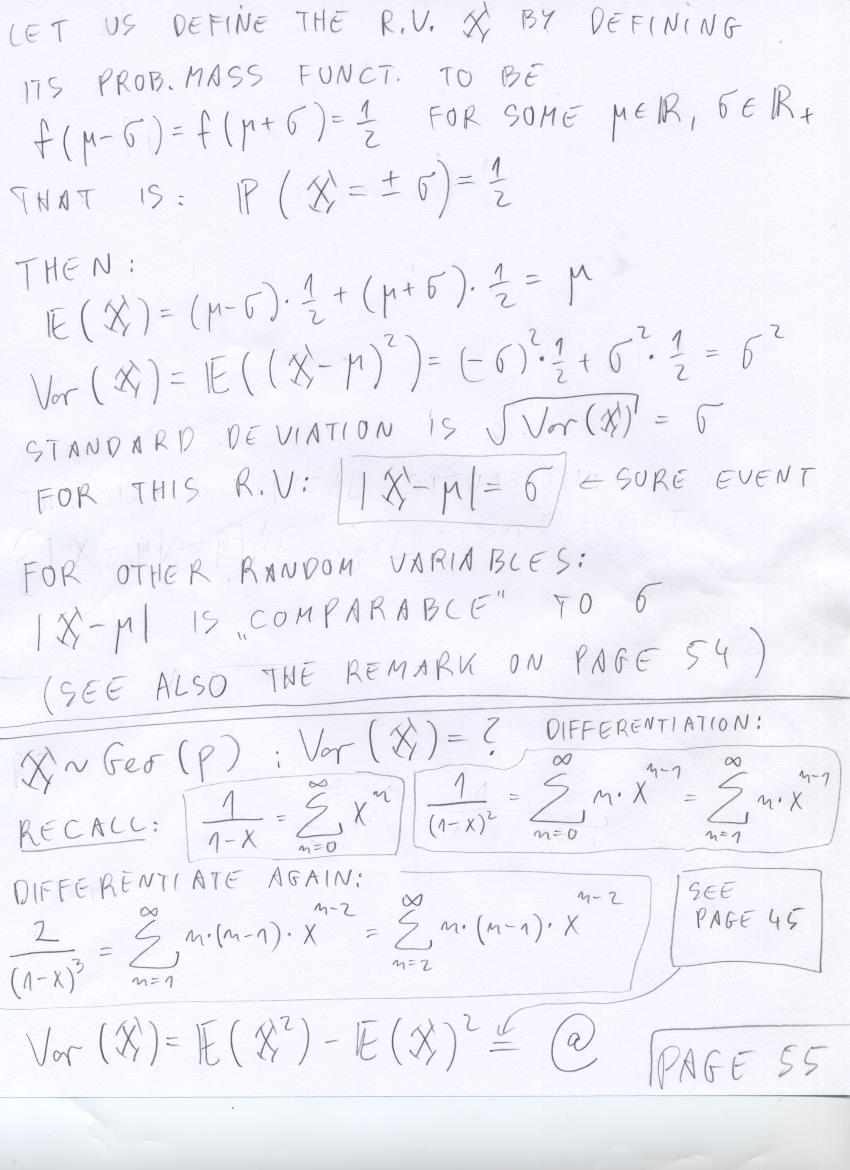 LET US DEFINE THE R.V. X BY DEFINING
ITS PROB. MASS FUNCT. TO BE
f(μ-σ) = f(μ+σ) = 1/2 FOR SOME μ∈ℝ, σ∈ℝ₊
THAT IS: ℙ(X = ±σ) = 1/2
THEN:
𝔼(X) = (μ-σ)·1/2 + (μ+σ)·1/2 = μ
Var(X) = 𝔼((X-μ)²) = (-σ)²·1/2 + σ²·1/2 = σ²
STANDARD DEVIATION IS √Var(X) = σ
FOR THIS R.V: |X-μ| = σ ← SURE EVENT
FOR OTHER RANDOM VARIABLES:
|X-μ| IS „COMPARABLE" TO σ
(SEE ALSO THE REMARK ON PAGE 54)
X ~ Geo(p) ; Var(X) = ? DIFFERENTIATION:
RECALL: 1/(1-x) = ∑_{n=0}^{∞} x^n 1/(1-x)² = ∑_{n=0}^{∞} n·x^{n-1} = ∑_{n=1}^{∞} n·x^{n-1}
DIFFERENTIATE AGAIN:
2/(1-x)³ = ∑_{n=1}^{∞} n·(n-1)·x^{n-2} = ∑_{n=2}^{∞} n·(n-1)·x^{n-2}
SEE
PAGE 45
Var(X) = 𝔼(X²) - 𝔼(X)² = @
PAGE 55